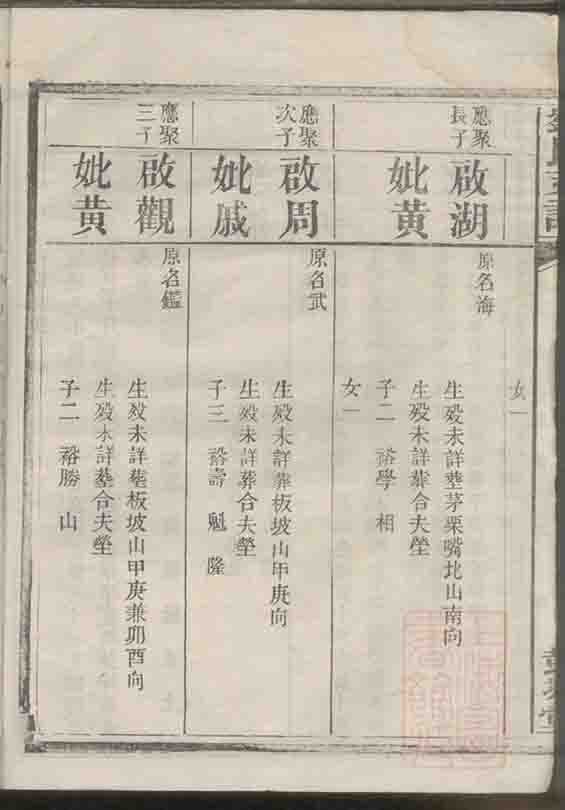 女一
應聚
長子
啟湖
妣黃
原名海
生殁未詳塟茅栗嘴北山南向
生殁未詳葬合夫塋
子二 裕學 相
女一
應聚
次子
啟周
妣戚
原名武
生殁未詳葬板坡山甲庚向
生殁未詳葬合夫塋
子三 裕壽 魁 隆
應聚
三子
啟觀
妣黃
原名鑑
生殁未詳塟板坡山甲庚兼卯酉向
生殁未詳塟合夫塋
子二 裕勝 山